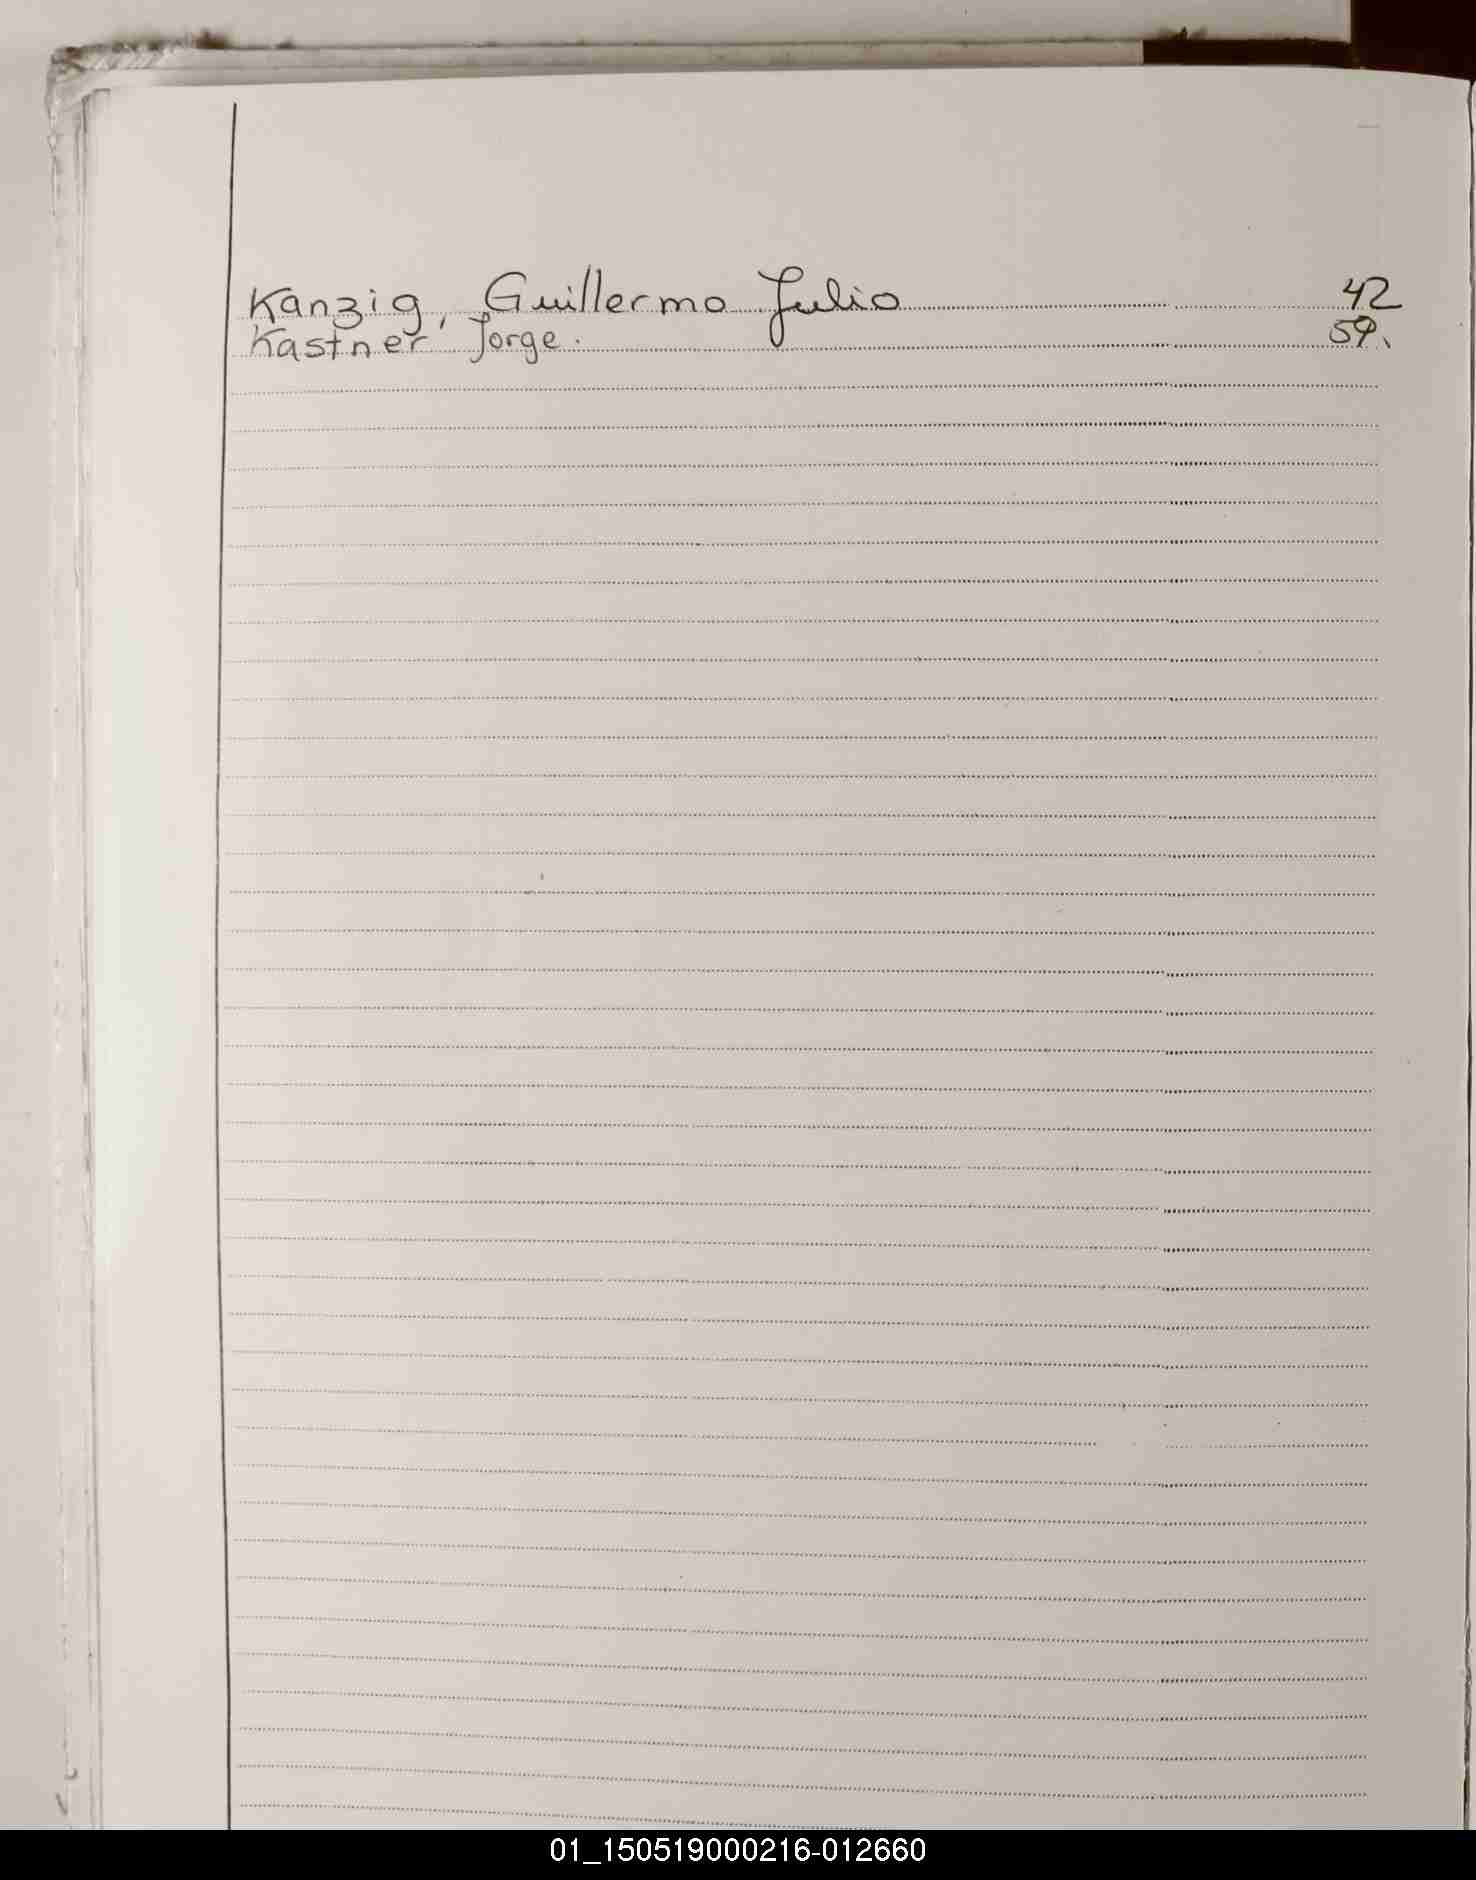 Kanzig, Guillermo Julio 42
Kastner Jorge. 59.
01_150519000216-012660